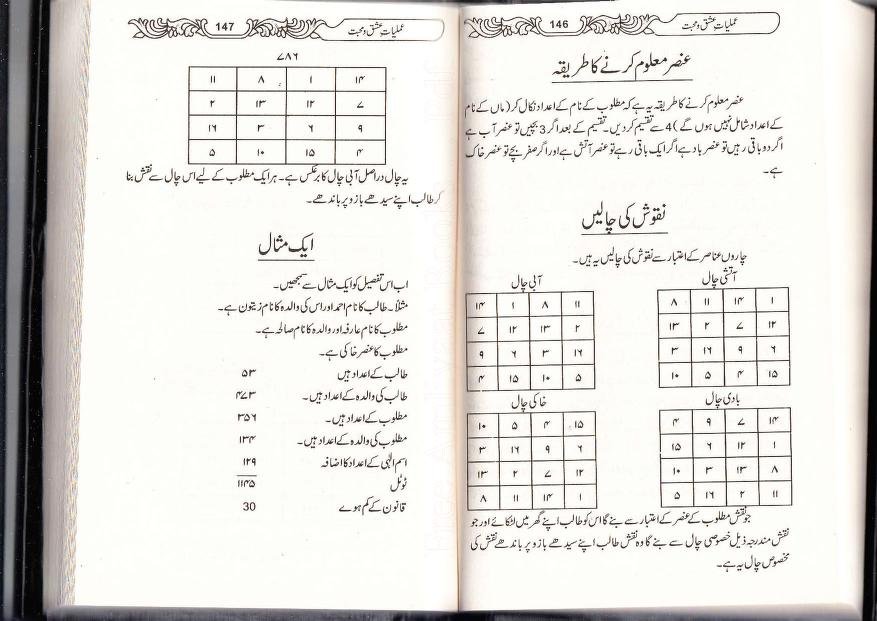 عملیات عشق و محبت 146
عنصر معلوم کرنے کا طریقہ
عنصر معلوم کرنے کا طریقہ یہ ہے کہ مطلوب کے نام کے اعداد نکال کر (ماں کے نام
کے اعداد شامل نہیں ہوں گے) 4 سے تقسیم کر دیں۔ تقسیم کے بعد اگر 3 بچیں تو عنصر آب ہے
اگر دو باقی رہیں تو عنصر باد ہے اگر ایک باقی رہے تو عنصر آتش ہے اور اگر صفر بچے تو عنصر خاک
ہے۔
نقوش کی چالیں
چاروں عناصر کے اعتبار سے نقوش کی چالیں یہ ہیں۔
آتشی چال
۱ ۱۴ ۱۱ ۸
۱۲ ۷ ۲ ۱۳
۶ ۹ ۱۶ ۳
۱۵ ۴ ۵ ۱۰
آبی چال
۱۱ ۸ ۱ ۱۴
۲ ۱۳ ۱۲ ۷
۱۶ ۳ ۶ ۹
۵ ۱۰ ۱۵ ۴
بادی چال
۱۴ ۷ ۹ ۴
۱ ۱۲ ۶ ۱۵
۸ ۱۳ ۳ ۱۰
۱۱ ۲ ۱۶ ۵
خاکی چال
۱۵ ۴ ۵ ۱۰
۶ ۹ ۱۶ ۳
۱۲ ۷ ۲ ۱۳
۱ ۱۴ ۱۱ ۸
جو نقش مطلوب کے عنصر کے اعتبار سے بنے گا اس کو طالب اپنے گھر میں لٹکائے اور جو
نقش مندرجہ ذیل خصوصی چال سے بنے گا وہ نقش طالب اپنے سیدھے بازو پر باندھے نقش کی
مخصوص چال یہ ہے۔
عملیات عشق و محبت 147
۷۸۶
۱۴ ۱ ۸ ۱۱
۷ ۱۲ ۱۳ ۲
۹ ۶ ۳ ۱۶
۴ ۱۵ ۱۰ ۵
یہ چال دراصل آبی چال کا برعکس ہے۔ ہر ایک مطلوب کے لیے اس چال سے نقش بنا
کر طالب اپنے سیدھے بازو پر باندھے۔
ایک مثال
اب اس تفصیل کو ایک مثال سے سمجھیں۔
مثلاً۔ طالب کا نام احمد اور اس کی والدہ کا نام زیتون ہے۔
مطلوب کا نام عارفہ اور والدہ کا نام صالحہ ہے۔
مطلوب کا عنصر خاکی ہے۔
طالب کے اعداد ہیں ۵۳
طالب کی والدہ کے اعداد ہیں۔ ۴۷۳
مطلوب کے اعداد ہیں۔ ۳۵۶
مطلوب کی والدہ کے اعداد ہیں۔ ۱۳۴
اسم الٰہی کے اعداد کا اضافہ ۱۲۹
ٹوٹل ۱۱۴۵
قانون کے کم ہوے 30